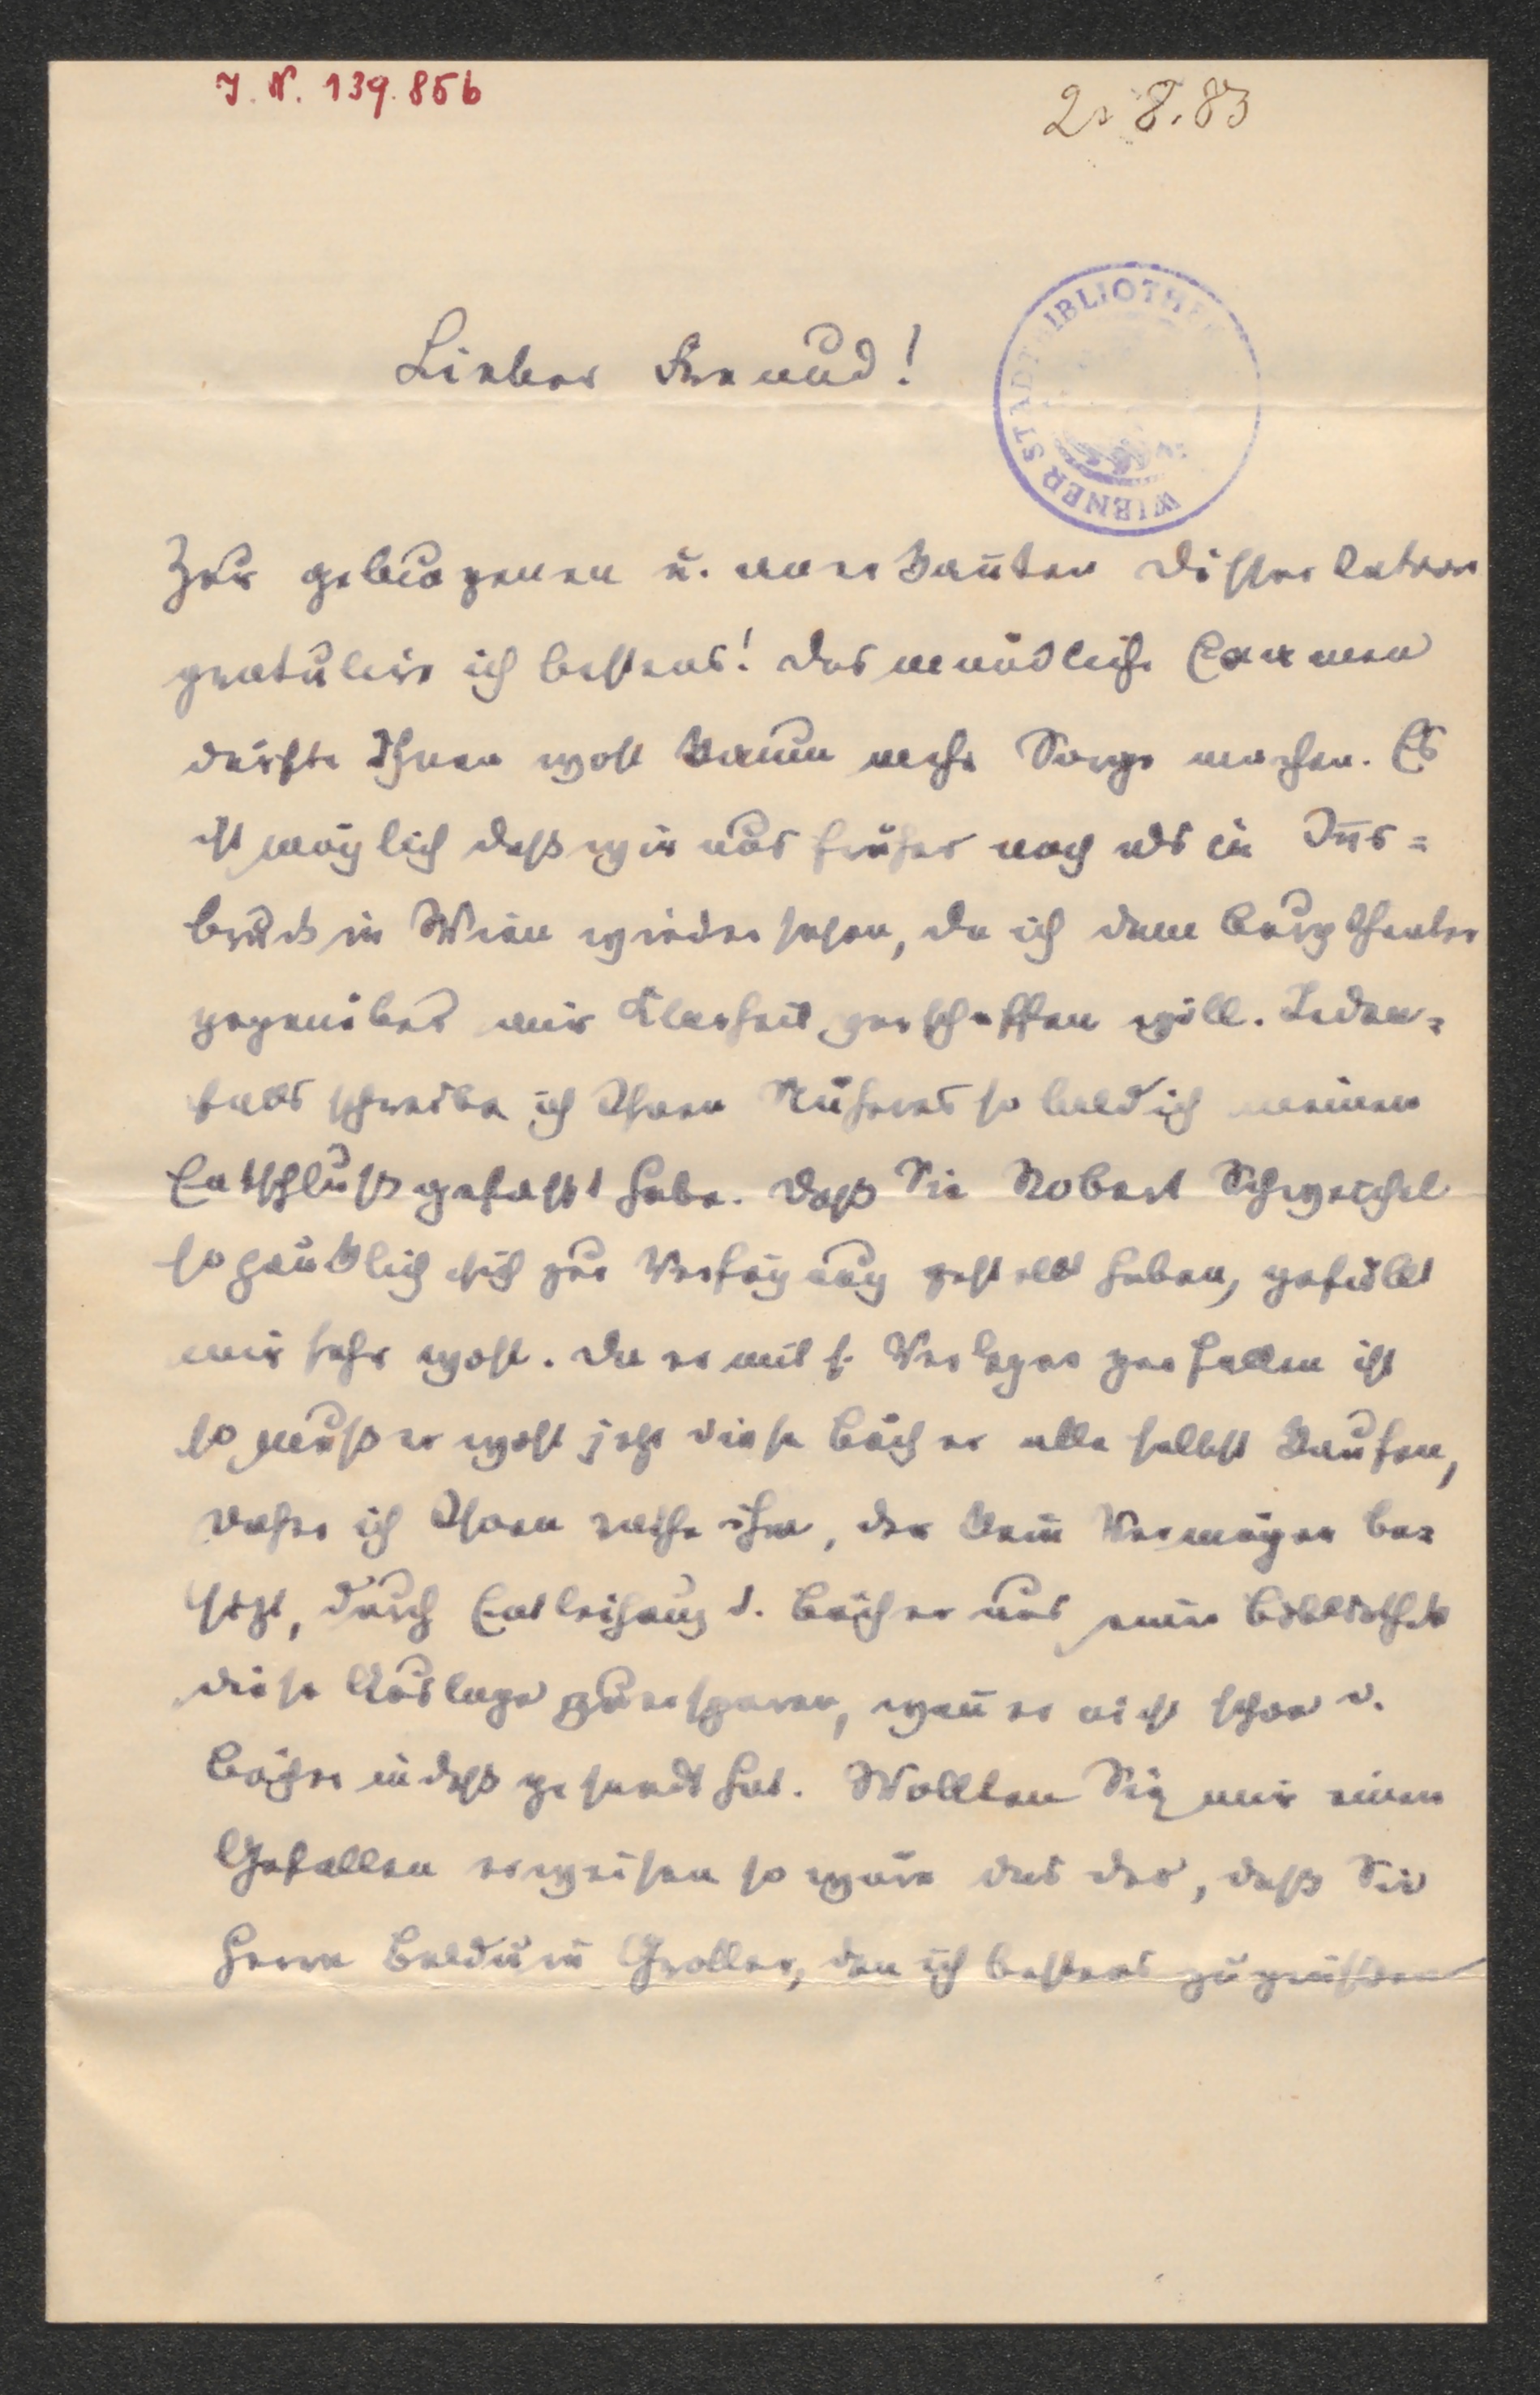 J. N. 139.856
2. 8. 83
WIENER STADTBIBLIOTHEK
Lieber Freund!
Zur gelungenen u. anerkañten Dissertation
gratulire ich bestens! Das mündliche Examen
dürfte Ihnen wohl kaum mehr Sorge machen. Es
ist möglich daß wir uns früher noch als in Iñs=
bruck in Wien wiedersehen, da ich dem Burgtheater
gegenüber mir Klarheit verschaffen will. Jeden=
falls schreibe ich Ihnen Näheres so bald ich meinen
Entschluß gefasst habe. Daß Sie Robert Schweichel
so pünktlich sich zur Verfügung gestellt haben, gefällt
mir sehr wohl. Da er mit s. Verleger zerfallen ist
so muß er wohl jetzt diese Bücher alle selbst kaufen,
daher ich Ihnen rathe ihm, der kein Vermögen be=
sitzt, durch Entleihung d. Bücher aus einer Bibliothek
diese Auslage zu ersparen, weñ er nicht schon d.
Bücher indeß gesandt hat. Wollten Sie mir einen
Gefallen erweisen so wäre das der, daß Sie
Herrn Balduin Groller, den ich bestens zu grüßen